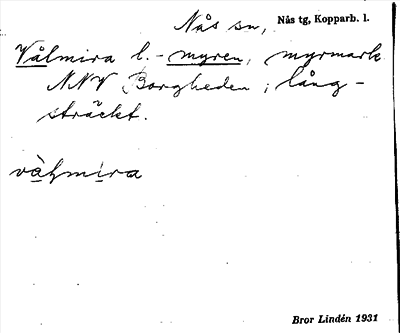 Nås sn, Nås tg, Kopparb. l.
Vålmira l. -myren, myrmark
NNV Borgheden; lång-
sträckt.
vålmira
Bror Lindén 1931